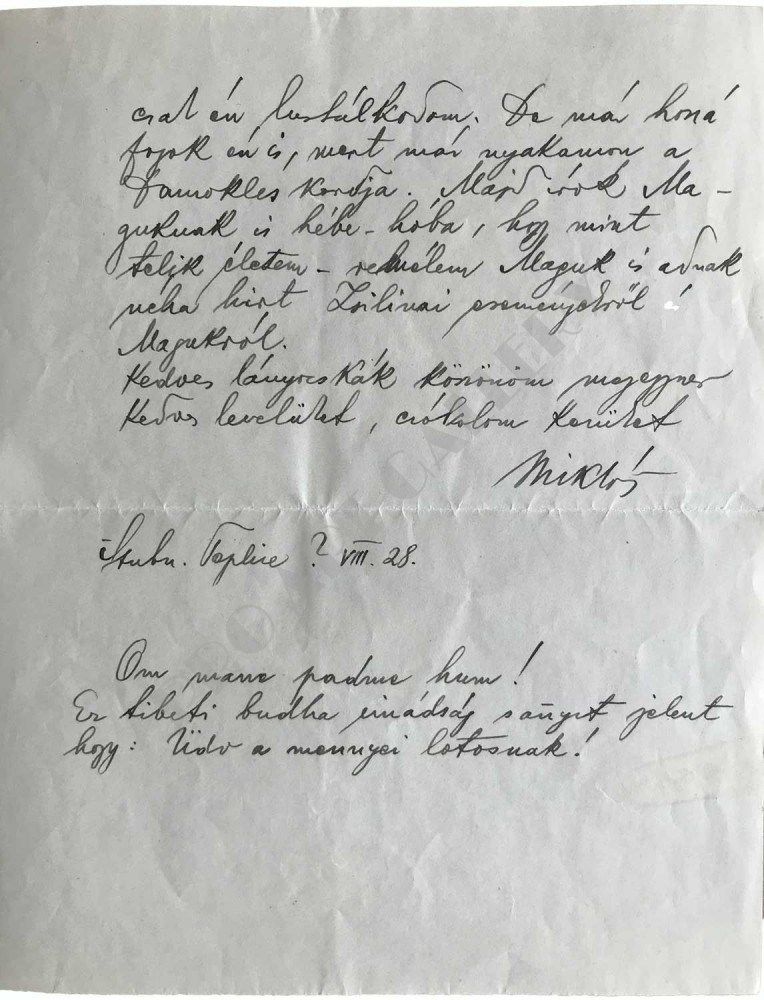 csak én lustálkodom. De már hozzá
fogok én is, mert már nyakamon a
Damokles kardja. Majd írok Ma-
guknak is hébe-hóba, hogy mint
telik életem - remélem Maguk is adnak
néha hirt Zsilinai eseményekről é
Magukról.
Kedves lányocskák köszönöm mégegyszer
kedves levelüket, csókolom kezüket
Miklós
Stubn. Teplice ? VIII. 28.
Om mane padme hum!
Ez tibeti budha imádság s annyit jelent
hogy: Üdv a mennyei lotosnak!